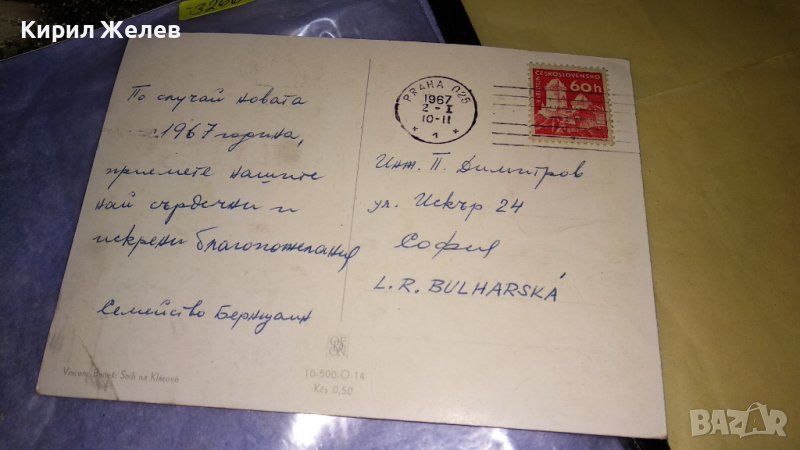 Кирил Желев
По случай новата
1967 година,
приемете нашите
най сърдечни и
искрени благопожелания
Семейство
PRAHA 025
1967
2-I
10-11
* 1 *
ČESKOSLOVENSKO
60h
Инж. П. Димитров
ул. Искър 24
София
L.R. BULHARSKÁ
Vincenc Beneš: Sníh na Klárově
10-500.O.14
Kčs 0,50
BAZAR